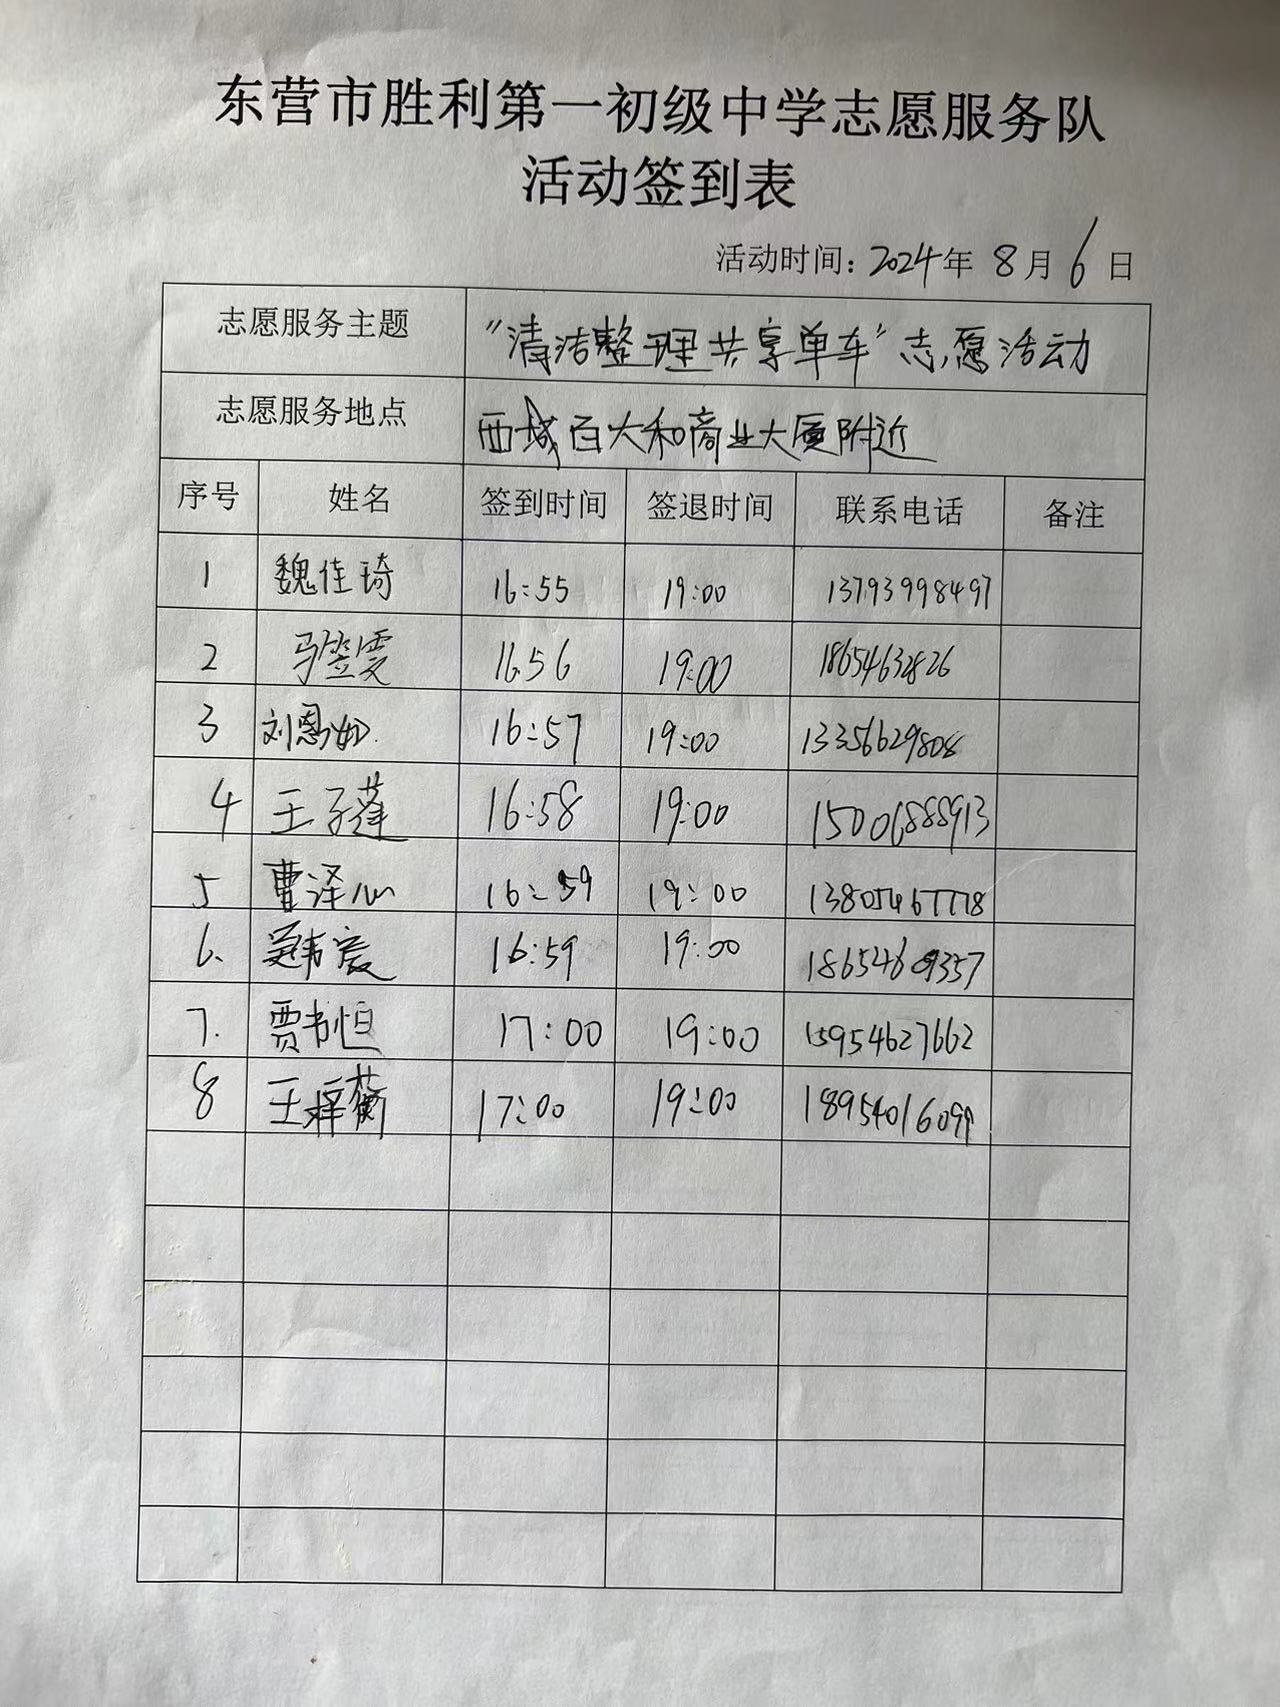 东营市胜利第一初级中学志愿服务队
活动签到表
活动时间：2024年 8月 6日
志愿服务主题 “清洁整理共享单车”志愿活动
志愿服务地点 西城百大和商业大厦附近
序号 姓名 签到时间 签退时间 联系电话 备注
1 魏佳琦 16:55 19:00 13793998497
2 马笠雯 16:56 19:00 18654632826
3 刘恩如 16:57 19:00 13356629808
4 王子蓬 16:58 19:00 15006888913
5 曹泽心 16:59 19:00
6. 16:59 19:00
7. 贾书恒 17:00 19:00 15954627662
8 王梓蘅 17:00 19:00